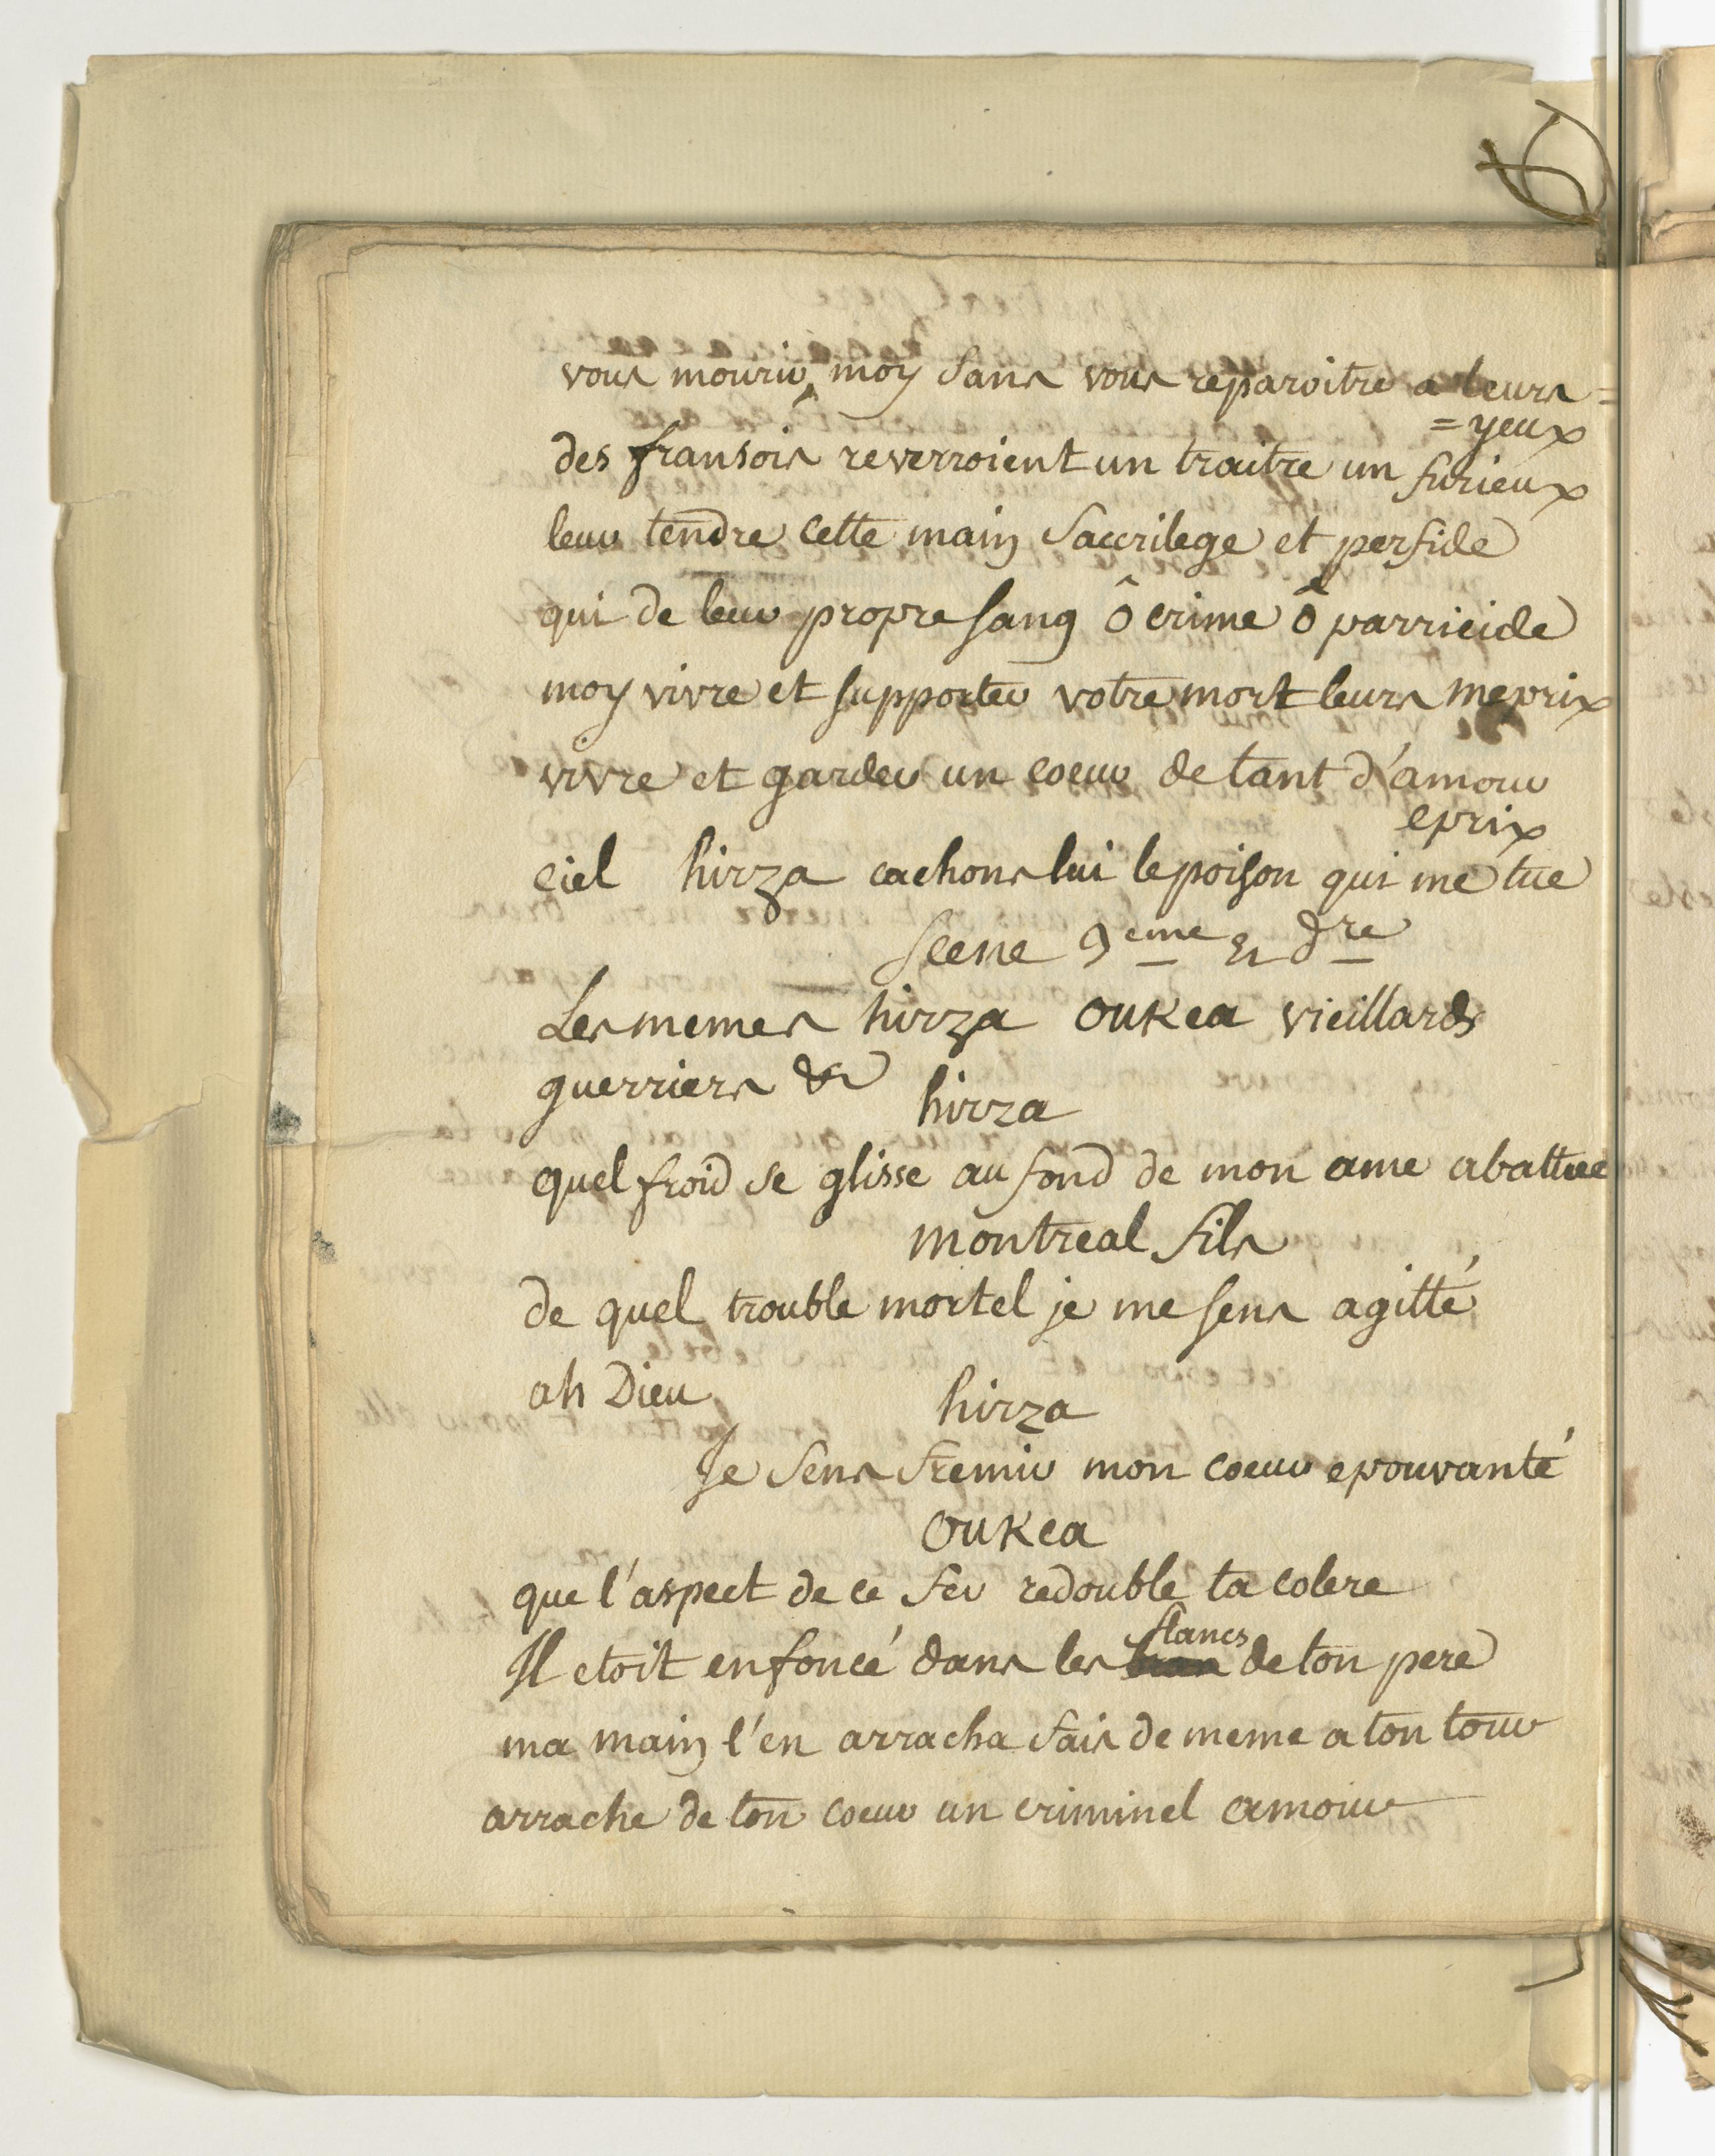 vous mourir, moy sans vous reparoitre a leurs =
= yeux
des fransois reverroient un traitre un furieux
leur tendre cette main Saccrilege et perfide
qui de leur propre sang ô crime ô parricide
moy vivre et supporter votre mort leurs meprix
vivre et garder un coeur de tant d'amour
eprix
ciel hirza cachons lui le poison qui me tue
Scene 9eme & dre
Les memes hirza OuKea vieillards
guerriers &c
hirza
quel froid se glisse au fond de mon ame abattue
montreal fils
de quel trouble mortel je me sens agitté
ah Dieu
hirza
Je sens fremir mon coeur epouvanté
OuKea
que l'aspect de ce fer redouble ta colere
Il etoit enfoncé dans les flancs de ton pere
ma main l'en arracha fais de meme a ton tour
arrache de ton coeur un criminel amour